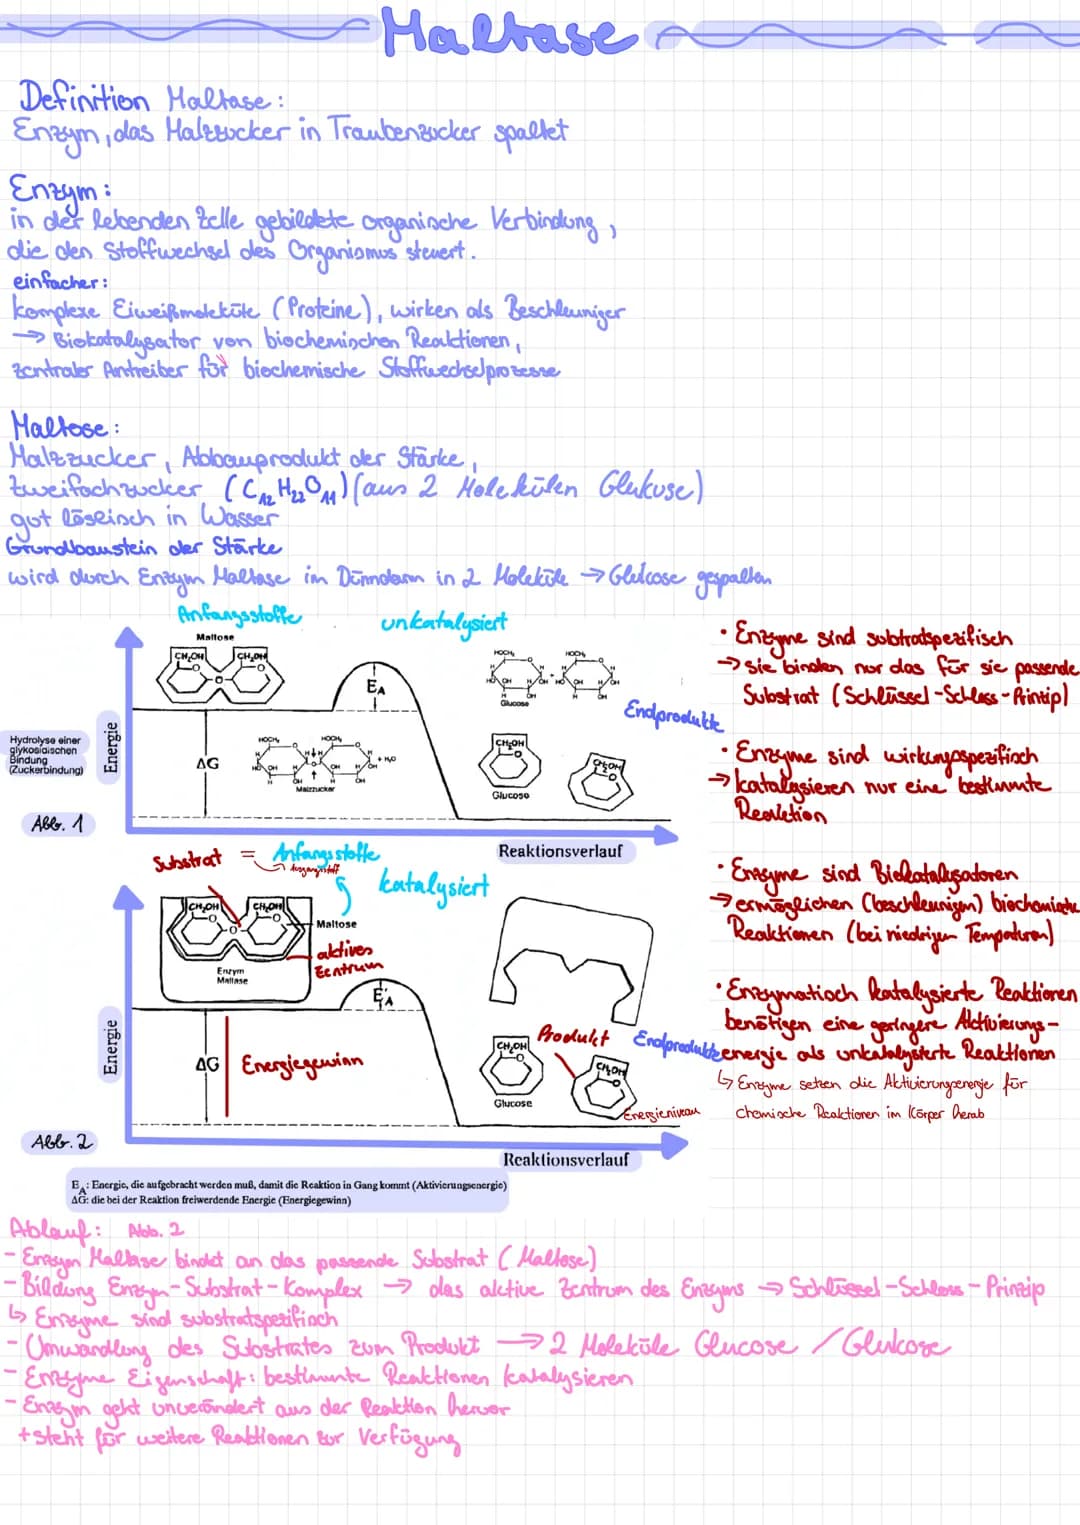 Maltase
Definition Maltase:
Enzym, das Malzzucker in Traubenzucker spaltet
Enzym:
in der lebenden Zelle gebildete organische Verbindung,
die den Stoffwechsel des Organismus steuert.
einfacher:
komplexe Eiweißmoleküle (Proteine), wirken als Beschleuniger
→ Biokatalysator von biochemischen Reaktionen,
zentraler Antreiber für biochemische Stoffwechselprozesse
Maltose:
Malzzucker, Abbauprodukt der Stärke,
Zweifachzucker (C12H22O11) (aus 2 Molekülen Glukose)
gut löslich in Wasser
Grundbaustein der Stärke
wird durch Enzym Maltase im Dünndarm in 2 Moleküle → Glukose gespalten
Anfangsstoffe
unkatalysiert
Maltose
CH₂OH CH₂OH
EA
HOCH₂ HOCH₂
Glucose
Endprodukte
Hydrolyse einer
glykosidischen
Bindung
(Zuckerbindung)
Energie
ΔG
HOCH₂ HOCH₂
+ H₂O
Malzzucker
CH₂OH
CH₂OH
Glucose
Abb. 1
Reaktionsverlauf
• Enzyme sind substratspezifisch
→ sie binden nur das für sie passende
Substrat (Schlüssel-Schloss-Prinzip)
• Enzyme sind wirkungsspezifisch
→ katalysieren nur eine bestimmte
Reaktion
• Enzyme sind Biokatalysatoren
→ ermöglichen (beschleunigen) biochemische
Reaktionen (bei niedrigen Temperaturen)
• Enzymatisch katalysierte Reaktionen
benötigen eine geringere Aktivierungs-
energie als unkatalysierte Reaktionen
↳ Enzyme setzen die Aktivierungsenergie für
chemische Reaktionen im Körper herab
Substrat = Anfangsstoffe
Ausgangsstoff
katalysiert
CH₂OH CH₂OH
Maltose
aktives
Zentrum
Enzym
Maltase
EA
Energie
ΔG
Energiegewinn
CH₂OH
Produkt
Endprodukte
CH₂OH
Glucose
Energieniveau
Abb. 2
Reaktionsverlauf
EA: Energie, die aufgebracht werden muß, damit die Reaktion in Gang kommt (Aktivierungsenergie)
ΔG: die bei der Reaktion freiwerdende Energie (Energiegewinn)
Ablauf: Abb. 2
- Enzym Maltase bindet an das passende Substrat (Maltose)
- Bildung Enzym-Substrat-Komplex → das aktive Zentrum des Enzyms → Schlüssel-Schloss-Prinzip
↳ Enzyme sind substratspezifisch
- Umwandlung des Substrates zum Produkt → 2 Moleküle Glucose / Glukose
- Enzyme Eigenschaft: bestimmte Reaktionen katalysieren
- Enzym geht unverändert aus der Reaktion hervor
+ steht für weitere Reaktionen zur Verfügung